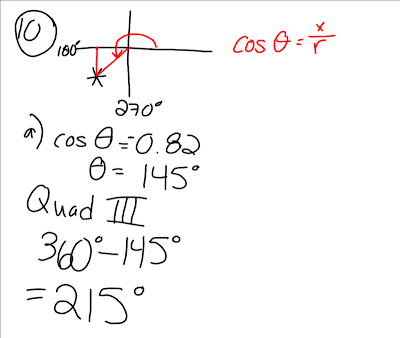 10
180°
270°
cos θ = x/r
a) cos θ = -0.82
θ = 145°
Quad III
360° - 145°
= 215°